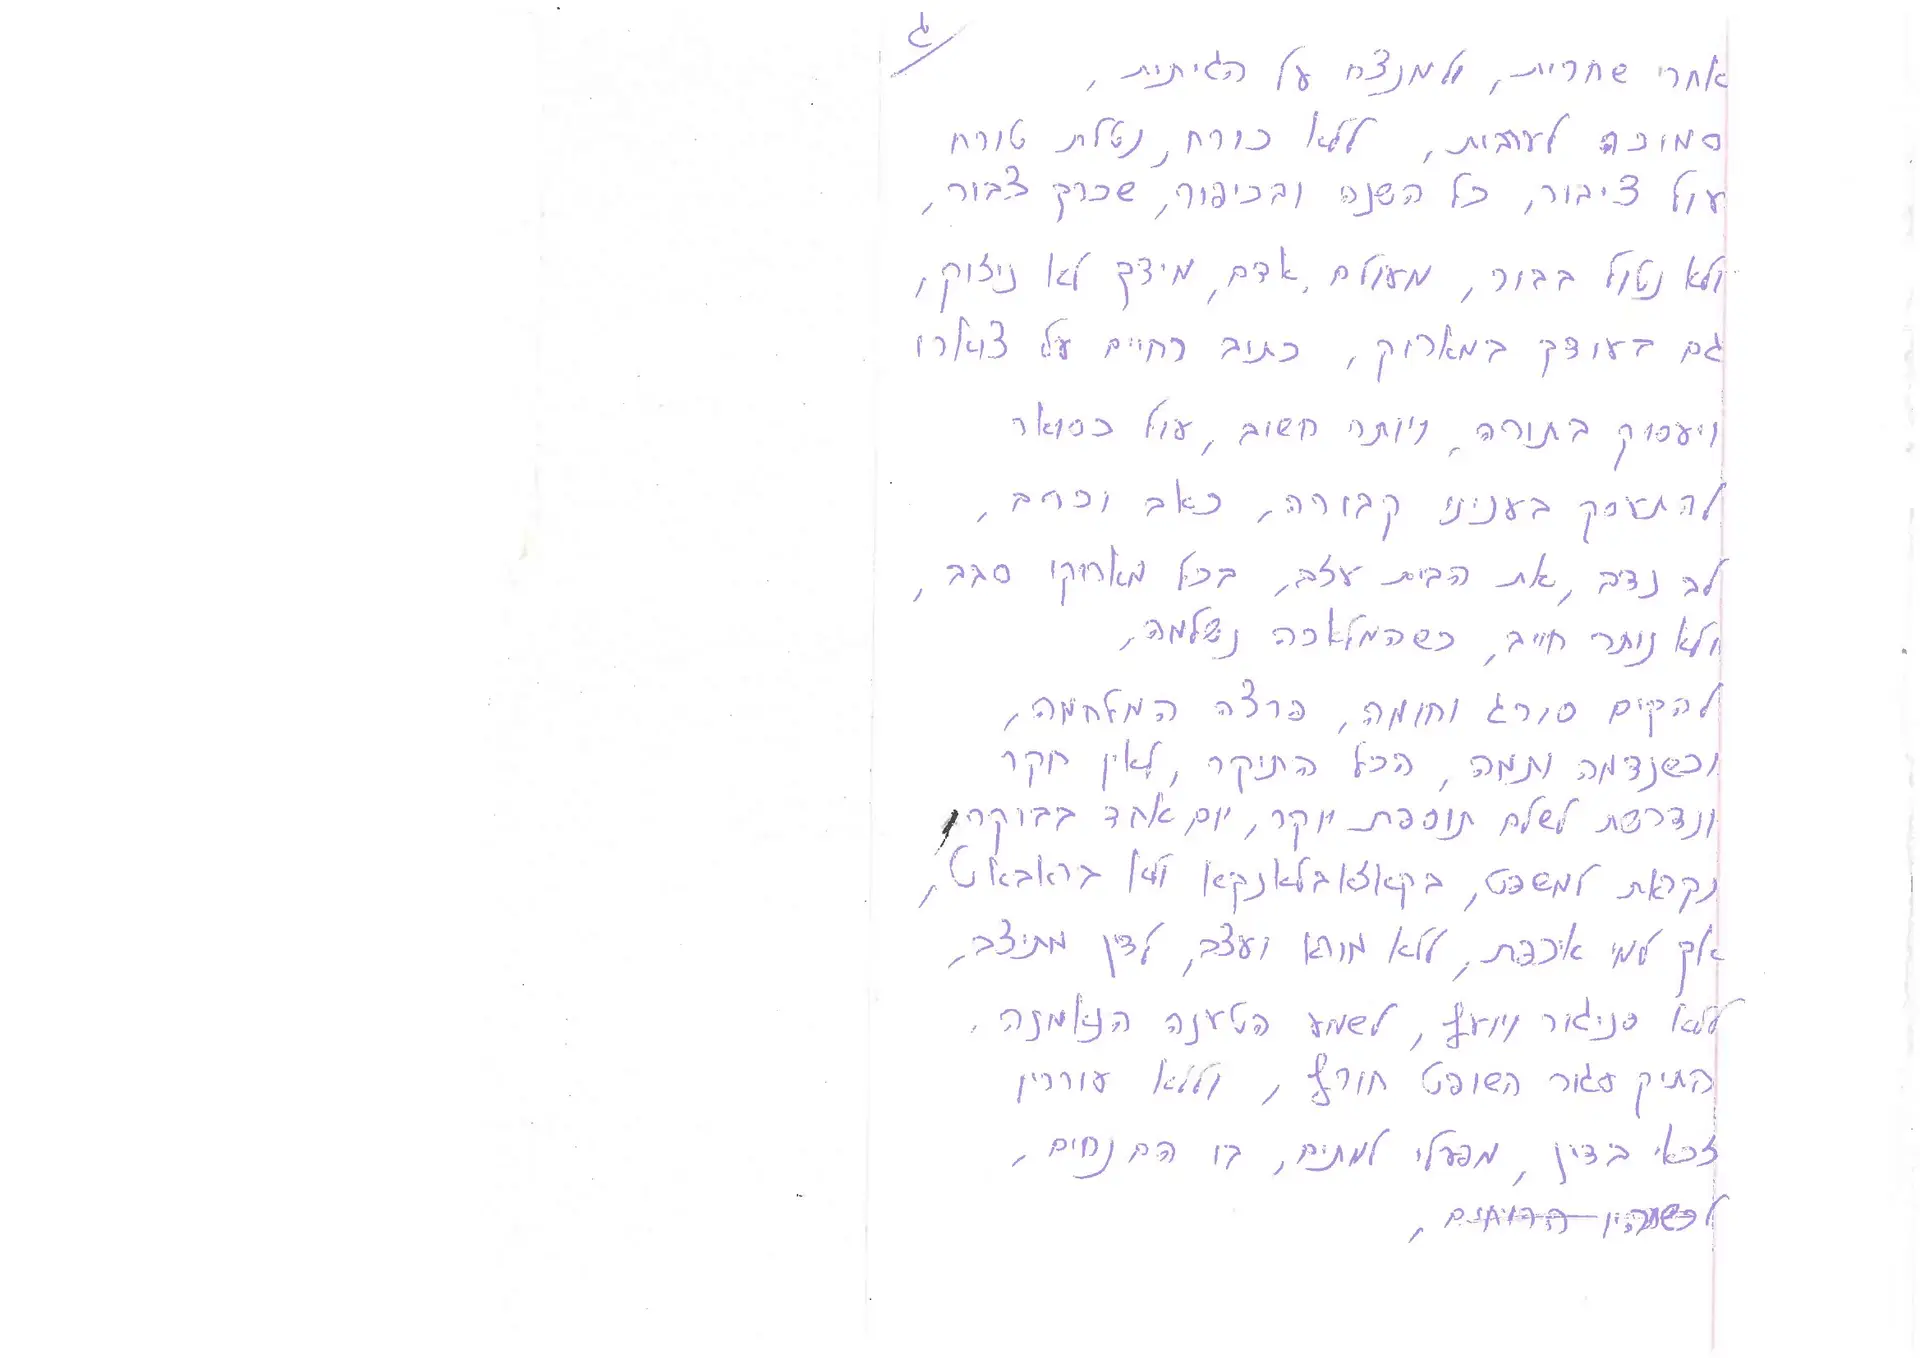 ג
אחרי שחרית, ולמנצח על הגיתית,
סמוכה לערבית, ללא כורח, נטלת טורח
עול ציבור, כל השנה ובכיפור, שכרך צבור,
ולא נטול בבור, מעולם, אדם, מידך לא ניזוק,
גם בעודך במארוק, כתוב רחיים על צוארו
ויעסוק בתורה, ויותר חשוב, עול כסואר
להתעסק בעניני קבורה, כאב וכרב,
לב נדיב, את הבית עזב, בכל מארוקו סבב,
ולא נותר חייב, כשהמלאכה נשלמה,
להקים סורג וחומה, פרצה המלחמה,
וכשנדמה ותמה, הכל התיקר, לאין חקר
ונדרשת לשלם תוספת יוקר, יום אחד בבוקר,
נקראת למשפט, בקאזאבלאנקא ולא בראבאט,
אך למי איכפת, ללא מורא ועצב, לדין מתיצב,
ללא סניגור ויועץ, לשמע הטענה הנאמנה,
התיק סגור השופט חורץ, וללא עוררין
זכאי בדין, מפעלי למתים, בו הם נחים,